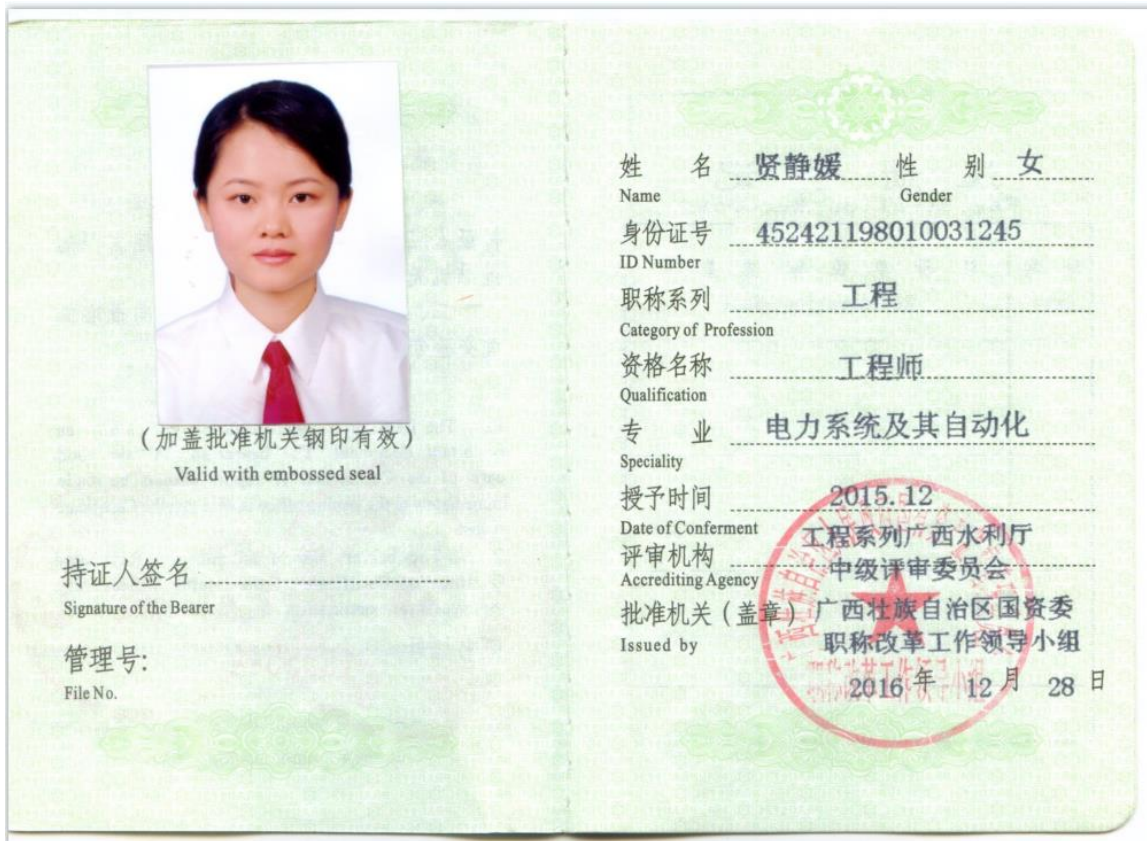 （加盖批准机关钢印有效）
Valid with embossed seal
持证人签名
Signature of the Bearer
管理号:
File No.
姓 名 贤静媛 性 别 女
Name Gender
身份证号 452421198010031245
ID Number
职称系列 工程
Category of Profession
资格名称 工程师
Qualification
专 业 电力系统及其自动化
Speciality
授予时间 2015.12
Date of Conferment 工程系列广西水利厅
评审机构 中级评审委员会
Accrediting Agency
批准机关（盖章） 广西壮族自治区国资委
Issued by 职称改革工作领导小组
2016 年 12 月 28 日